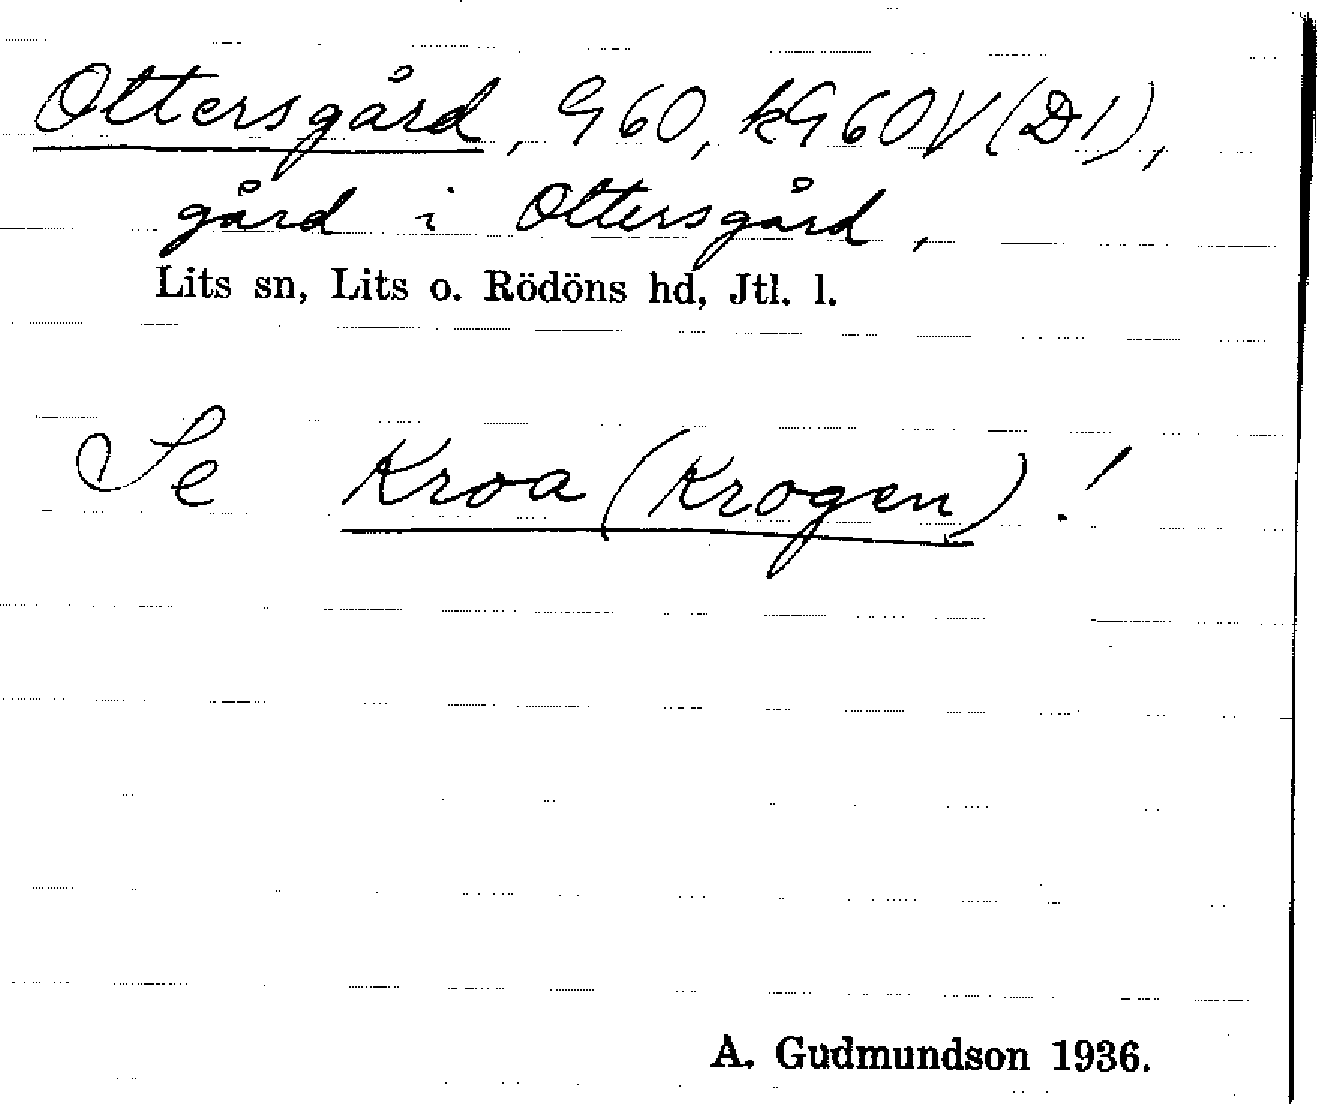 Ottersgård, G60, kG60V(D1),
gård i Ottersgård,
Lits sn, Lits o. Rödöns hd, Jtl. l.
Se Kroa (Krogen)!
A. Gudmundson 1936.